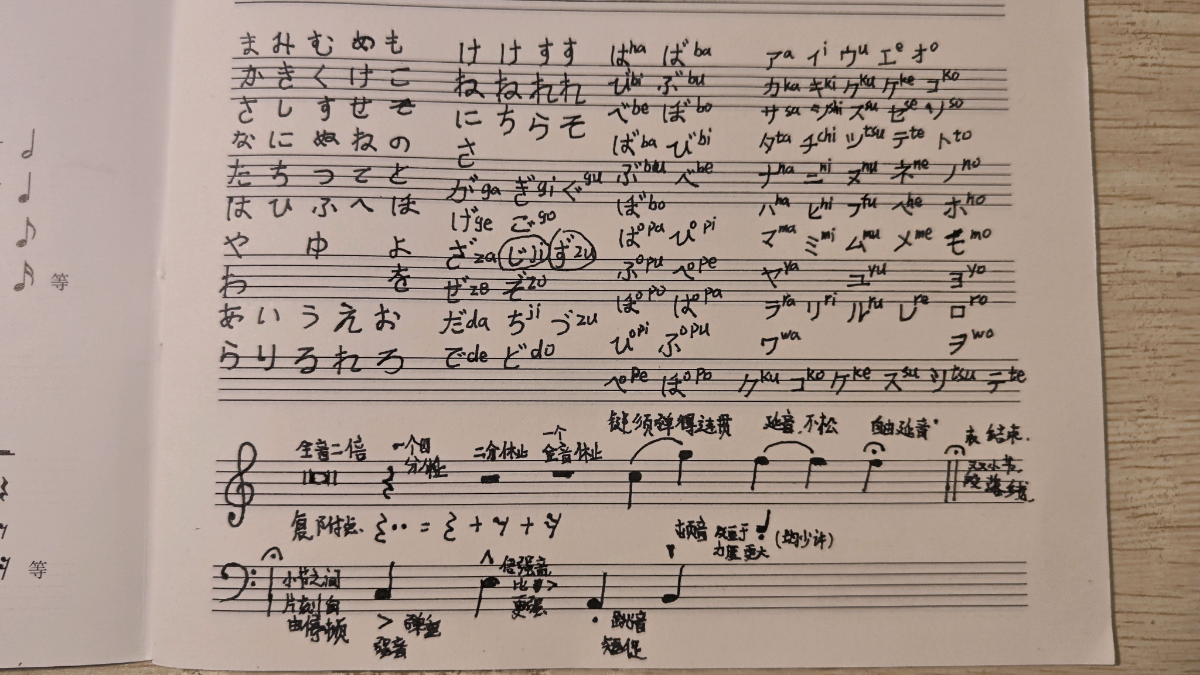 まみむめも
かきくけこ
さしすせそ
なにぬねの
たちつてと
はひふへほ
や ゆ よ
わ を
あいうえお
らりるれろ
け け す す
ね ね れ れ
に ち ら そ
さ
がga ぎgi ぐgu
げge ごgo
ざza じji ずzu
ぜze ぞzo
だda ぢji づzu
でde どdo
はha ばba
びbi ぶbu
べbe ぼbo
ばba びbi
ぶbu べbe
ぼbo
ぱpa ぴpi
ぷpu ぺpe
ぽpo ぱpa
ぴpi ぷpu
ぺpe ぽpo
アa イi ウu エe オo
カka キki クku ケke コko
サsa シshi スsu セse ソso
タta チchi ツtsu テte トto
ナna ニni ヌnu ネne ノno
ハha ヒhi フfu ヘhe ホho
マma ミmi ムmu メme モmo
ヤya ユyu ヨyo
ラra リri ルru レre ロro
ワwa ヲwo
クku コko ケke スsu ツtsu テte
等
等
键须弹得连贯 延音,不松 自由延音 表结束.
全音二倍 一个四分休止 二分休止 一个全音休止
双小节,
段落线
复附点 = + +
顿音 放重于
力度更大
(均少许)
小节之间
片刻自
由停顿
> 弹重
强音
倍强音
比 >
更强
跳音
短促